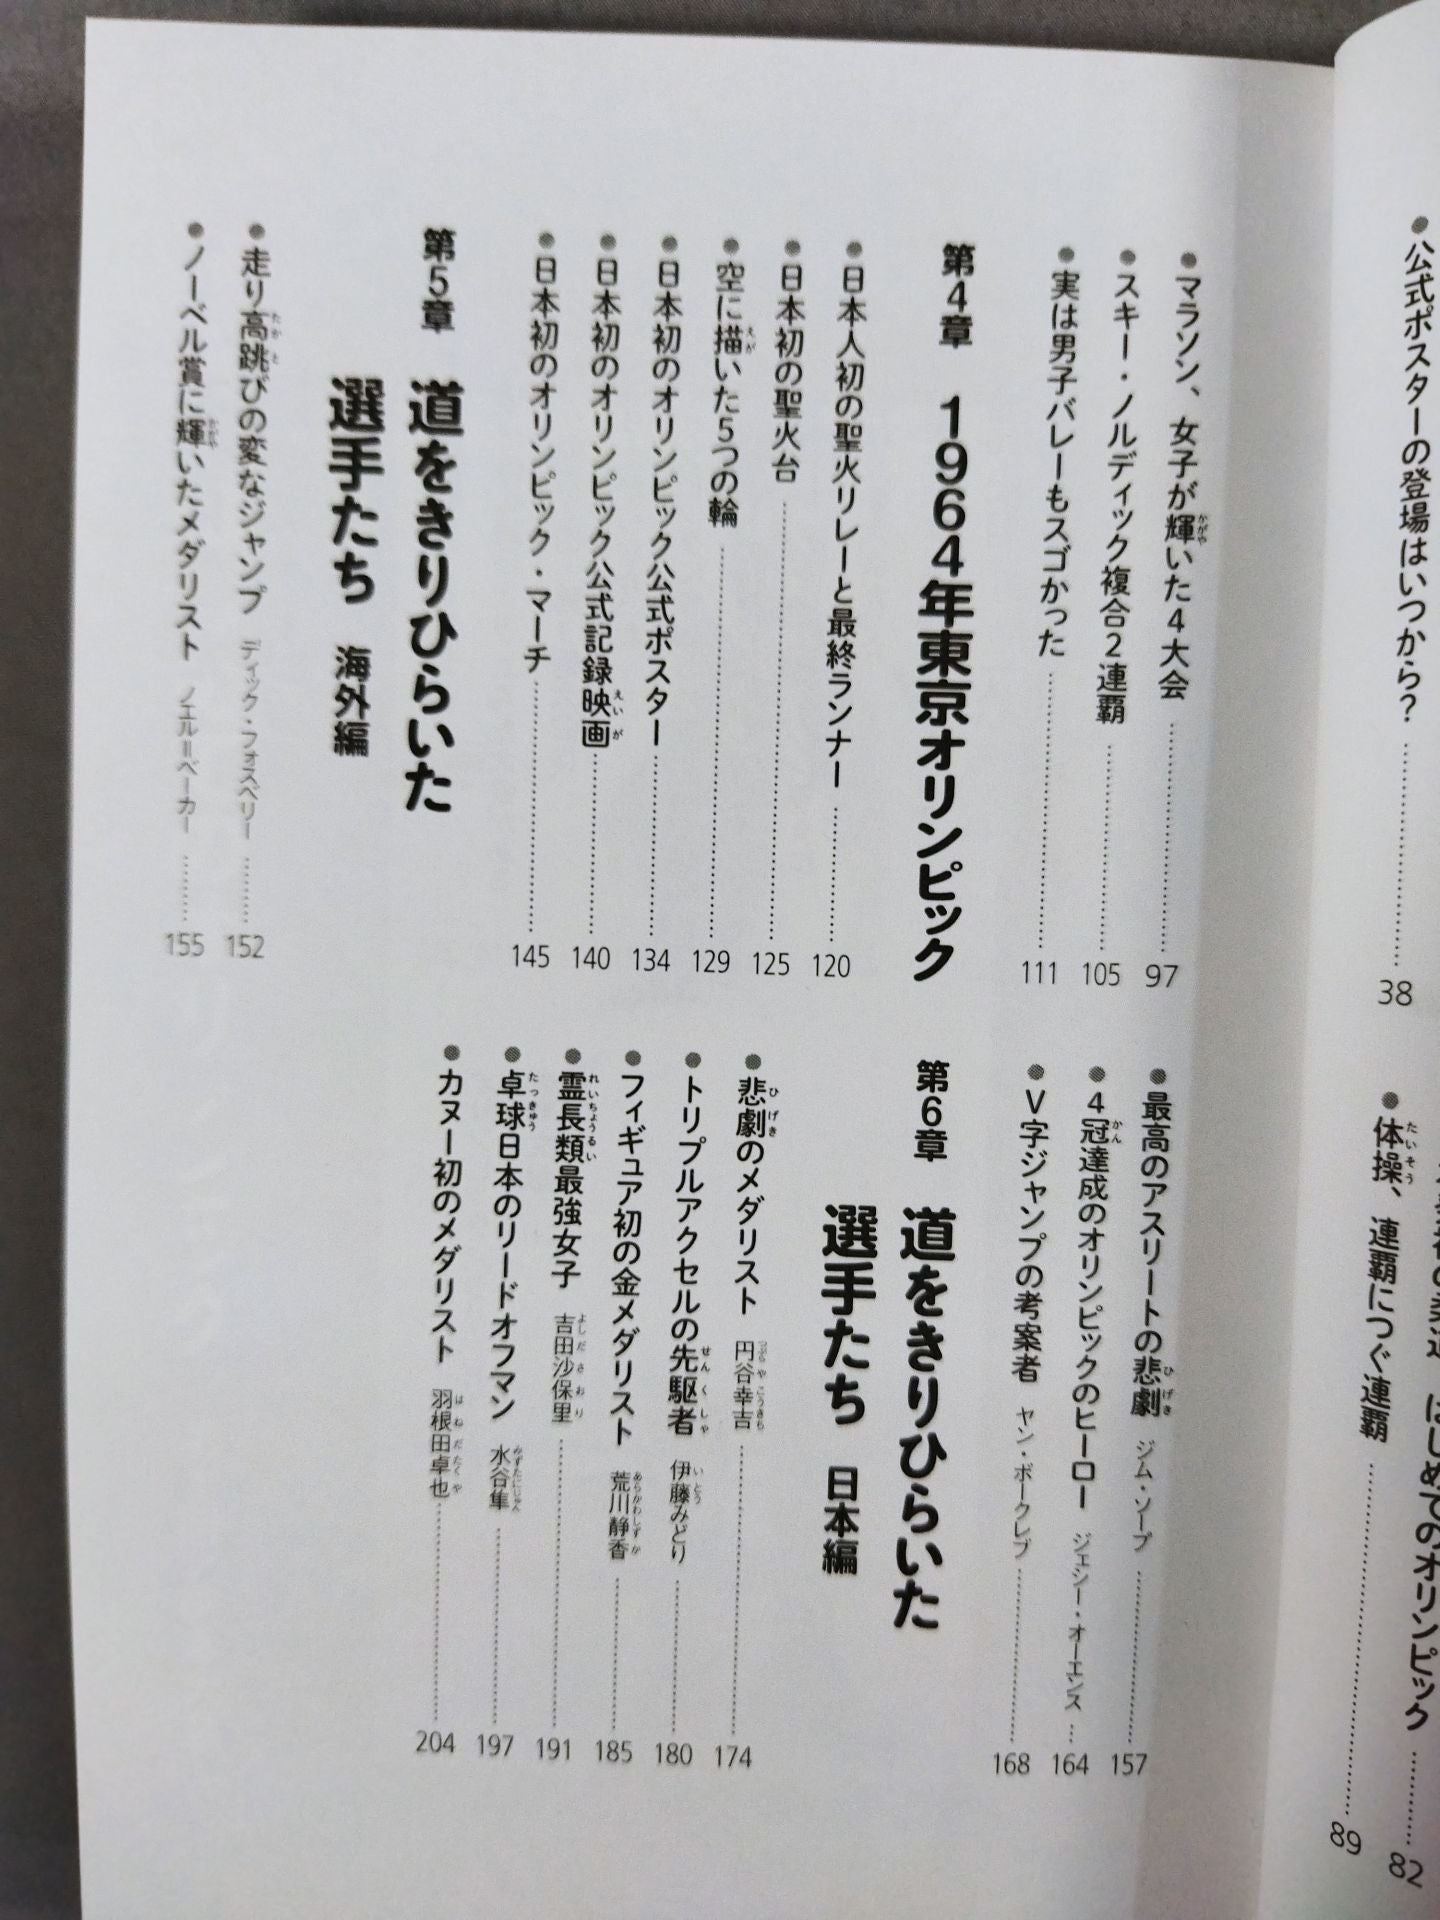 公式ポスターの登場はいつから? 38
はじめてのオリンピック 82
体操、連覇につぐ連覇 89
マラソン、女子が輝いた4大会 97
スキー・ノルディック複合2連覇 105
実は男子バレーもスゴかった 111
第4章 1964年東京オリンピック
日本人初の聖火リレーと最終ランナー 120
日本初の聖火台 125
空に描いた5つの輪 129
日本初のオリンピック公式ポスター 134
日本初のオリンピック公式記録映画 140
日本初のオリンピック・マーチ 145
第5章 道をきりひらいた
選手たち 海外編
走り高跳びの変なジャンプ ディック・フォスベリー 152
ノーベル賞に輝いたメダリスト ノエル=ベーカー 155
最高のアスリートの悲劇 ジム・ソープ 157
4冠達成のオリンピックのヒーロー ジェシー・オーエンス 164
V字ジャンプの考案者 ヤン・ボークレブ 168
第6章 道をきりひらいた
選手たち 日本編
悲劇のメダリスト 円谷幸吉 174
トリプルアクセルの先駆者 伊藤みどり 180
フィギュア初の金メダリスト 荒川静香 185
霊長類最強女子 吉田沙保里 191
卓球日本のリードオフマン 水谷隼 197
カヌー初のメダリスト 羽根田卓也 204